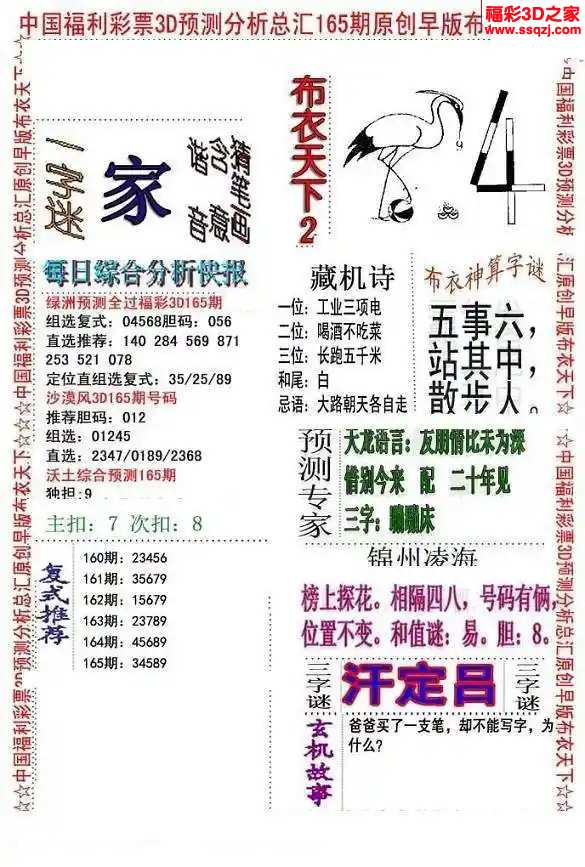 中国福利彩票3D预测分析总汇165期原创早版布
福彩3D之家
www.ssqzj.com
一字迷
家
谐音
含意
猜笔画
布衣天下2
4
每日综合分析快报
绿洲预测全过福彩3D165期
组选复式：04568胆码：056
直选推荐：140 284 569 871
253 521 078
定位直组选复式：35/25/89
沙漠风3D165期号码
推荐胆码：012
组选：01245
直选：2347/0189/2368
沃土综合预测165期
独扣:9
主扣：7 次扣：8
复式推荐
160期：23456
161期：35679
162期：15679
163期：23789
164期：45689
165期：34589
藏机诗
一位：工业三项电
二位：喝酒不吃菜
三位：长跑五千米
和尾：白
忌语：大路朝天各自走
布衣神算字谜
五事六，
站其中，
散步人。
预测专家
天龙语言：友朋情比禾为深
惜别今来 配 二十年见
三字：蹦蹦床
锦州凌海
榜上探花。相隔四八，号码有俩，
位置不变。和值谜：易。胆：8。
三字谜
汗定吕
三字谜
玄机故事
爸爸买了一支笔，却不能写字，为
什么？
☆中国福利彩票3D预测分析总汇原创早版布衣天下☆